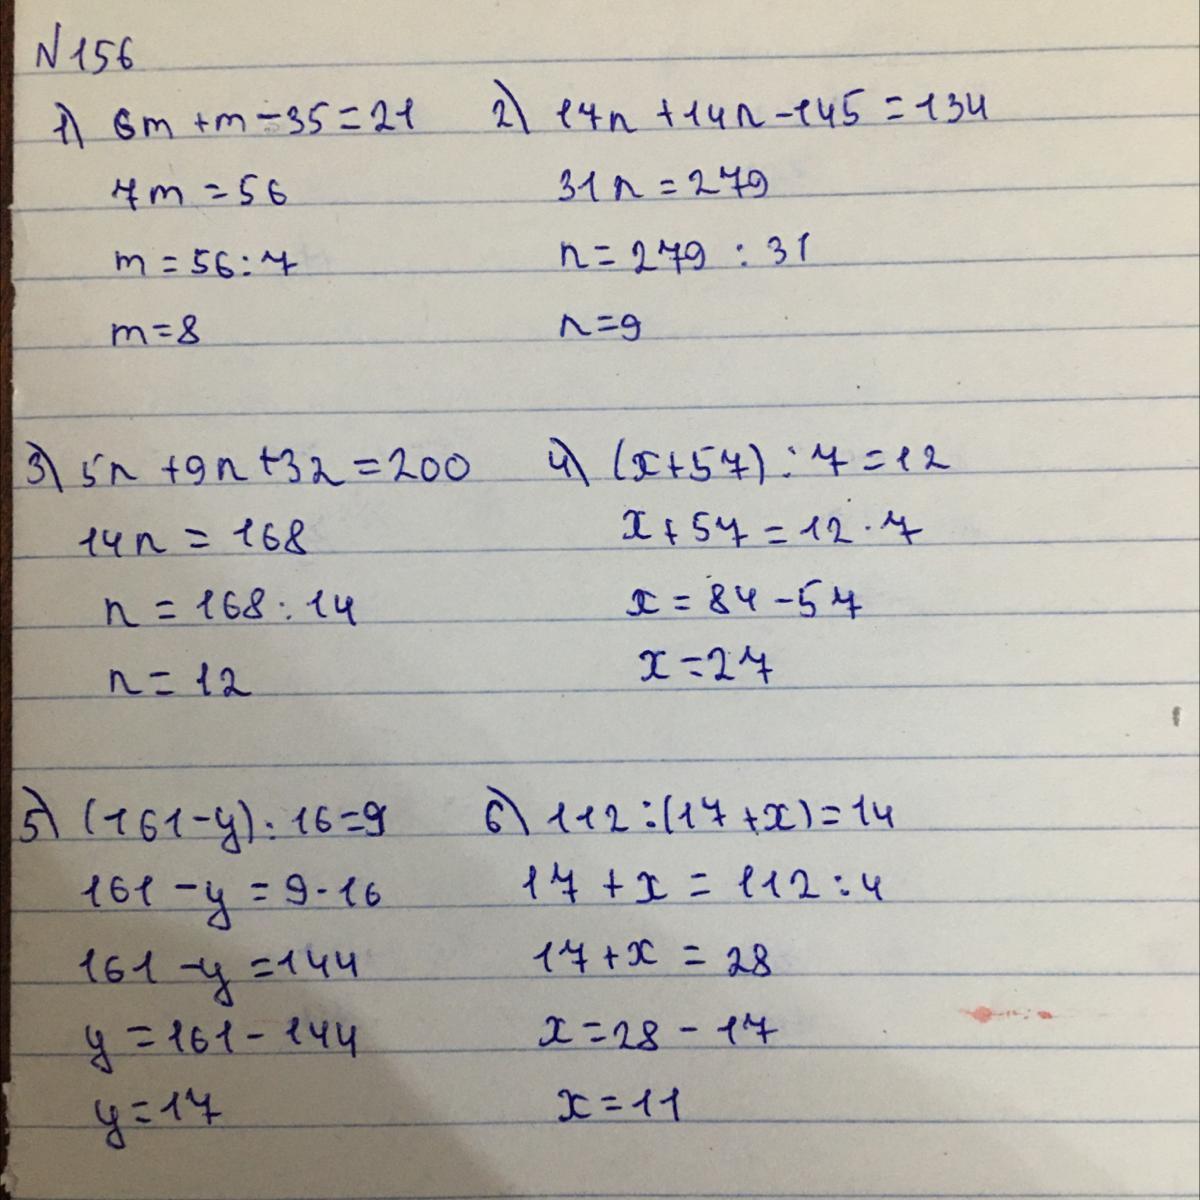 N156
1) 6m + m - 35 = 21
7m = 56
m = 56 : 7
m = 8
2) 17n + 14n - 145 = 134
31n = 279
n = 279 : 31
n = 9
3) 5n + 9n + 32 = 200
14n = 168
n = 168 : 14
n = 12
4) (x + 57) : 7 = 12
x + 57 = 12 · 7
x = 84 - 57
x = 27
5) (161 - y) : 16 = 9
161 - y = 9 · 16
161 - y = 144
y = 161 - 144
y = 17
6) 112 : (17 + x) = 14
17 + x = 112 : 4
17 + x = 28
x = 28 - 17
x = 11